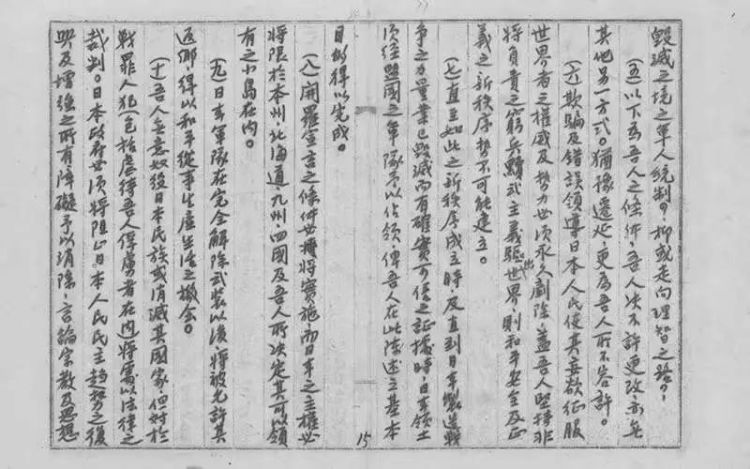 毀滅之境之軍人統制?抑或走向理智之路?
(五)以下為吾人之條件,吾人決不許更改,亦無
其他另一方式。猶豫遷延,更為吾人所不容許。
(六)欺騙及錯誤領導日本人民使其妄欲征服
世界者之權威及勢力必須永久剷除,蓋吾人堅持非
將負責之窮兵黷武主義驅出世界,則和平安全及正
義之新秩序勢不可能建立。
(七)直至如此之新秩序成立時,及直到日本製造戰
爭之力量業已毀滅而有確實可信之証據時,日本領土
須經盟國之軍隊予以佔領,俾吾人在此陳述之基本
目的得以完成。
15
(八)開羅宣言之條件必將實施,而日本之主權必
將限於本州,北海道,九州,四國及吾人所決定其可以領
有之小島在內。
(九)日本軍隊在完全解除武裝以後,將被允許其
返鄉,得以和平從事生產生活之機會。
(十)吾人無意奴役日本民族或消滅其國家,但對於
戰罪人犯,包括虐待吾人俘虜者在內,將處以法律之
裁判。日本政府必須將阻止日本人民民主趨勢之復
興及增強之所有障礙予以消除,言論宗教及思想